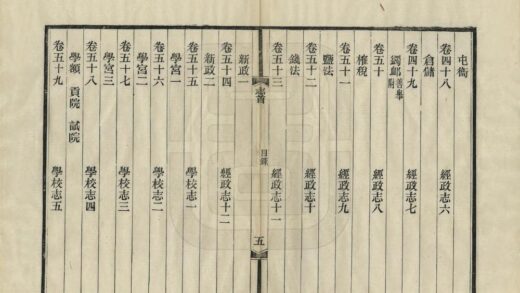 屯衞
卷四十八 經政志六
倉儲
卷四十九 經政志七
蠲卹 善舉附
卷五十 經政志八
榷稅
卷五十一 經政志九
鹽法
卷五十二 經政志十
錢法
卷五十三 經政志十一
志首 目錄 五
新政一
卷五十四 經政志十二
新政二
卷五十五 學校志一
學宮一
卷五十六 學校志二
學宮二
卷五十七 學校志三
學宮三
卷五十八 學校志四
學額 貢院 試院
卷五十九 學校志五